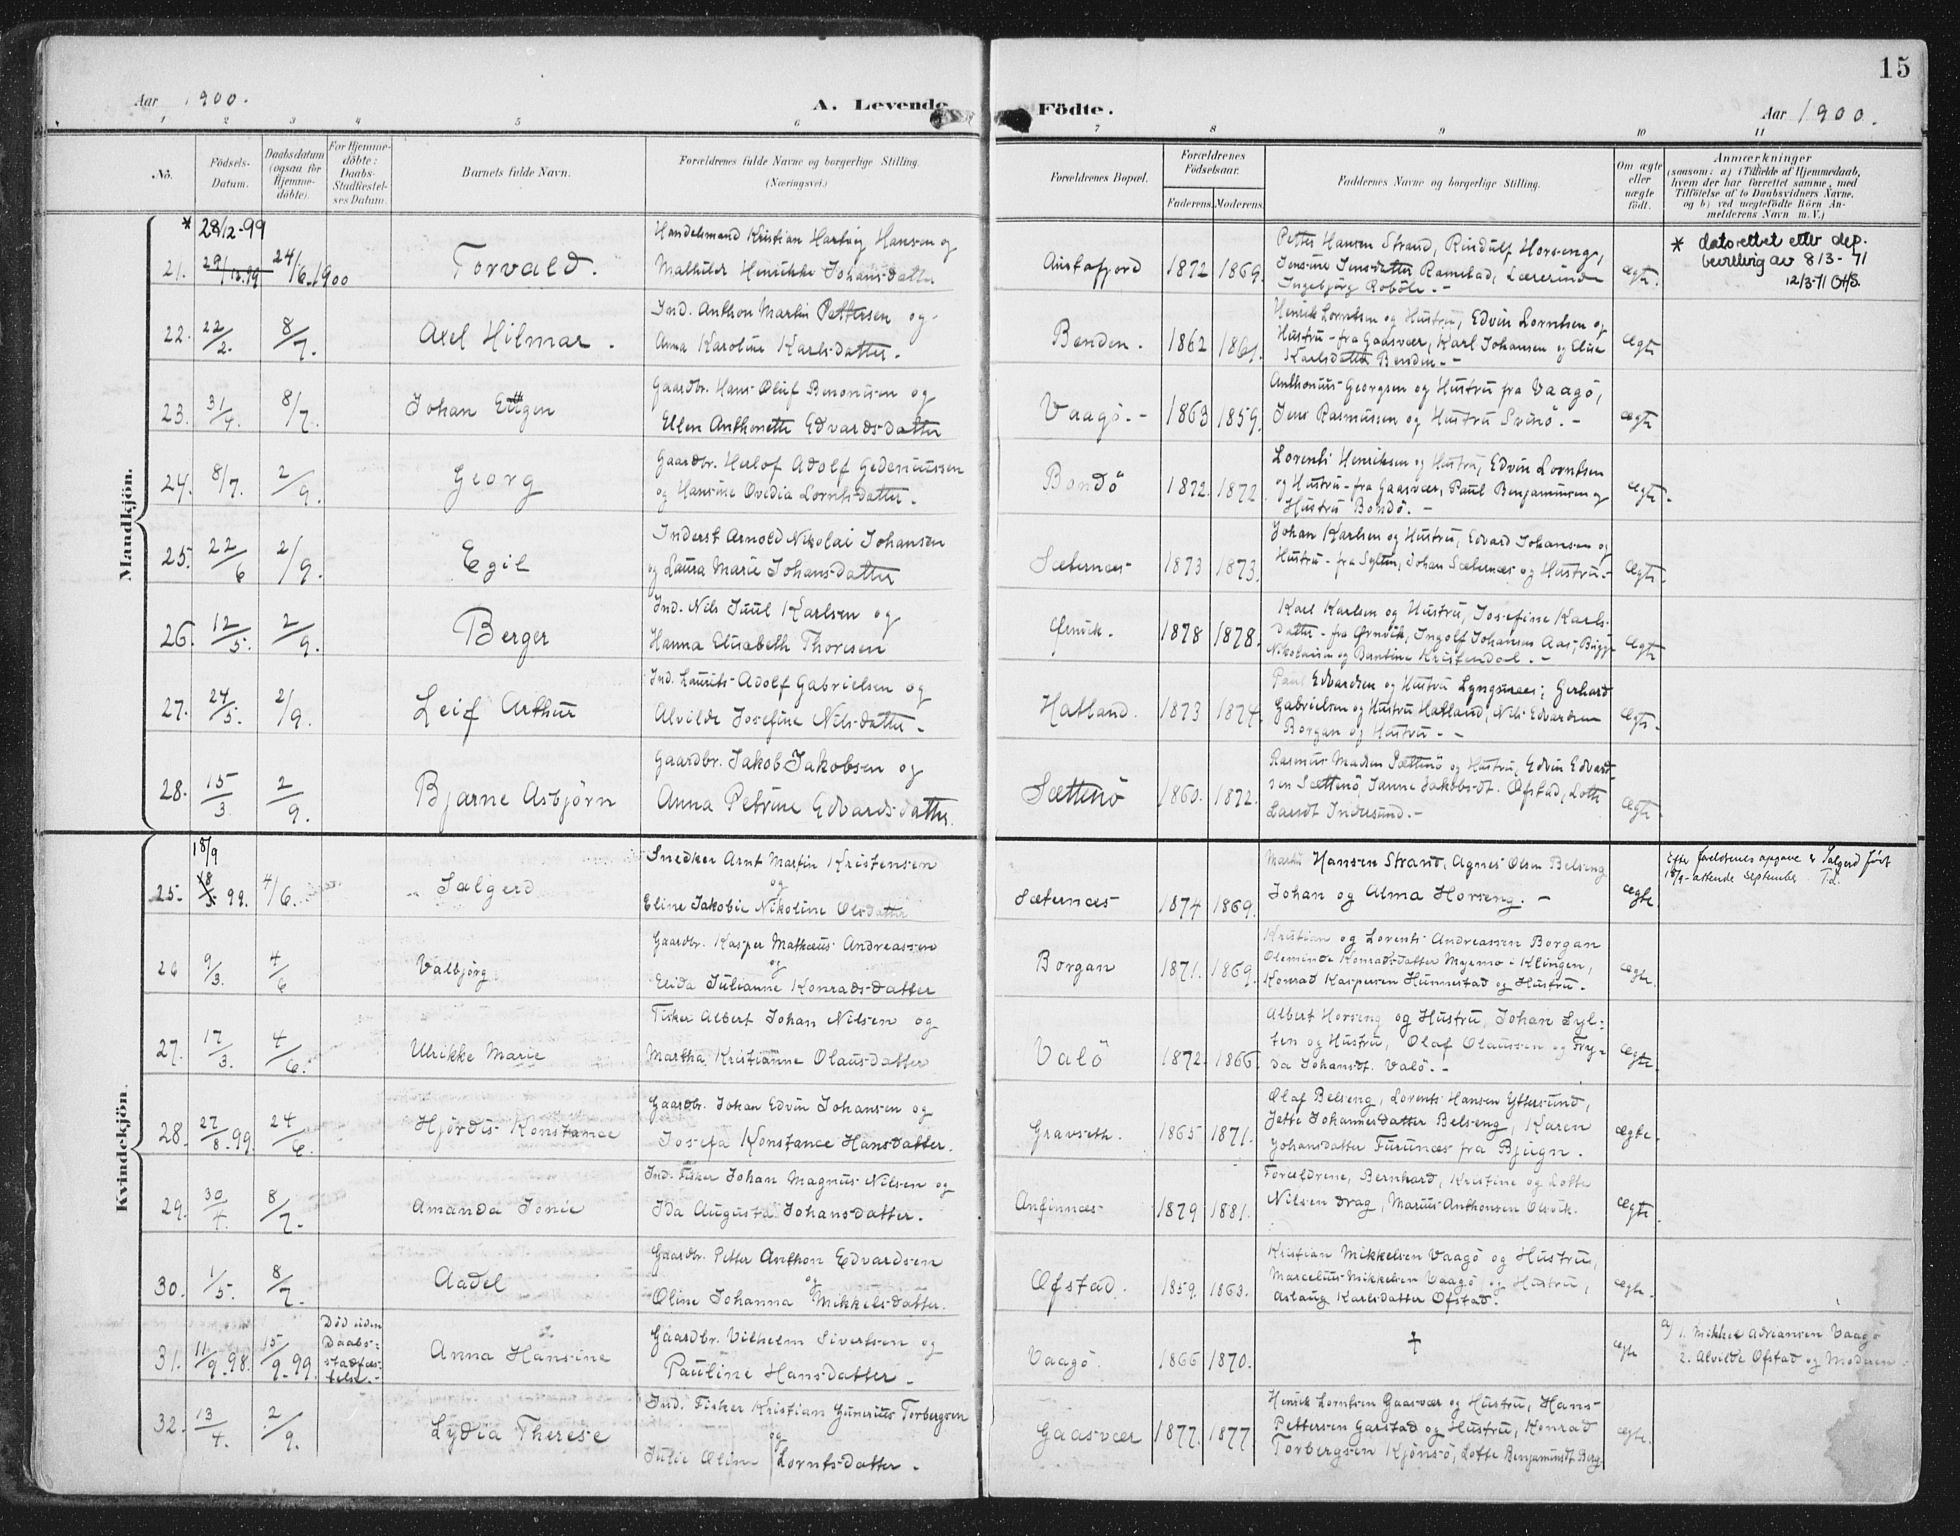 15
Aar 1900.
A. Levende Födte.
Aar 1900.
1 2 3 4 5 6 7 8 9 10 11
No.
Födsels-Datum.
Daabsdatum (ogsaa for Hjemme-döbte).
For Hjemme-döbte: Daabs-Stadfæstel-ses Datum.
Barnets fulde Navn.
Forældrenes fulde Navne og borgerlige Stilling.
(Næringsvei.)
Forældrenes Bopæl.
Forældrenes Födselsaar.
Faderens.
Moderens.
Faddernes Navne og borgerlige Stilling.
Om ægte eller uægte födt.
Anmærkninger
(saasom: a) i Tilfælde af Hjemmedaab,
hvem der har forrettet samme, med
Tilföielse af to Daabsvidners Navne,
og b) ved uegtefödte Börn An-
melderens Navn m. V.)
Mandkjön.
* 28/12-99
21. 29/12.99 24/6.1900 Torvald.
Handelsmand Kristian Hartvig Hansen og
Mathilde Henrikke Johansdatter
Austafjord 1872 1869.
Petter Hansen Strand, Rindulf Horseng,
Jensine Jensdatter Ramstad, Lærerinde
Ingebjörg Roböle. -
ægte.
* dato rettet etter dep.
bevilling av 8/3-71
12/3-71 OHS.
22. 22/2. 8/7. Axel Hilmar.
Ind. Anthon Martin Pettersen og
Anna Karoline Karlsdatter.
Benden. 1862 1861.
Henrik Lorntsen og Hustru, Edvin Lorntsen og
Hustru - fra Gaasvær, Karl Johansen og Elise
Karlsdatter Benden. -
ægte
23. 31/4. 8/7. Johan Ettgen
Gaardbr. Hans Oluf Benonisen og
Ellen Anthonette Edvardsdatter
Vaagö. - 1863 1859.
Anthonius Georgsen og Hustru fra Vaagö,
Jens Rasmussen og Hustru Svinö. -
ægte
24. 8/7. 2/9. Georg
Gaardbr. Herlof Adolf Gedeniussen
og Hansine Ovidia Lorntsdatter. -
Bondö 1872. 1872
Lorents Henriksen og Hustru, Edvin Lorntsen
og Hustru - fra Gaasvær, Paul Benjaminsen og
Hustru Bondö. -
ægte.
25. 22/6 2/9. Egil
Inderst Arnold Nikolai Johansen
og Laura Marie Johansdatter
Sæternæs 1873 1873.
Johan Karlsen og Hustru, Edvard Johansen og
Hustru - fra Sylten, Johan Sæternæs og Hustru. -
ægte.
26. 12/5. 2/9. Berger
Ind. Nils Juul Karlsen og
Hanna Elisabeth Thoresen
Ørnvik. 1878 1878.
Karl Karlsen og Hustru, Josefine Karls-
datter - fra Ørnvik, Ingolf Johansen Aas,
Nikolaisen og Krisfendal. -
ægte
27. 24/5. 2/9. Leif Arthur
Ind. Laurits Adolf Gabrielsen og
Alvilde Josefine Nilsdatter. -
Hatland. 1873 1874.
Paul Edvardsen og Hustru Lyngsnæs, Gerhard
Gabrielsen og Hustru Hatland, Nils Edvardsen
Borgan og Hustru - -
ægte.
28. 15/3 2/9. Bjarne Asbjörn
Gaardbr. Jakob Jakobsen og
Anna Petrine Edvardsdatter.
Sættenö 1860. 1872.
Rasmus Madsen Sættenö og Hustru, Edvin Edvard-
sen Sættenö, Janne Jakobsdt. Ofstad, Lotte
Indresund. -
ægte.
Kvindekjön.
18/9
25. 18/3 99. 4/6. Salgerd
Snedker Arnt Martin Kristensen
og
Eline Jakobie Nikoline Olsdatter
Sæternæs 1874 1869.
Hansen Strand, Agnes Olsen Belseng
Johan og Alma Horseng. -
ægte.
Efter forældrenes opgave er Salgerd födt
18/9 - attende September. T.L.
26 9/3. 4/6 Valbjörg
Gaardbr. Kasper Mathæus Andreassen
og
Elida Julianne Konradsdatter
Borgan 1871. 1869.
Kristian og Lorents Andreassen Borgan
Oleminde Konradsdatter Myrmo i Klingen,
Konrad Kaspersen Hunnestad og Hustru.
ægte.
27. 17/3. 4/6. Ulrikke Marie
Fisker Albert Johan Nilsen og
Martha Kristianne Olausdatter
Valö 1872. 1866.
Albert Horseng og Hustru, Johan Syl-
ten og Hustru, Olaf Olaussen og Fry-
da Johansdt. Valö. -
ægte.
28. 27/8-99. 24/6. Hjördis Konstance
Gaardbr. Johan Edvin Johansen og
Josefa Konstance Hansdatter.
Gravseth. 1865 1871.
Olaf Belseng, Lorents Hansen Yttersund,
Jette Johannesdatter Belseng, Karen
Johansdatter Furunæs fra Bjugn.
ægte.
29. 30/4. 8/7. Amanda Jonie
Ind. Fisker Johan Magnus Nilsen og
Ida Augusta Johansdatter.
Anfinnæs 1879 1881.
Forældrene, Bernhard, Kristine og Lotte
Nilsen Drag, Marius Anthonsen Olsvik.
ægte.
30. 1/5. 8/7. Aadel
Gaardbr. Petter Anthon Edvardsen
og
Oline Johanna Mikkelsdatter.
Ofstad. 1859. 1863.
Kristian Mikkelsen Vaagö og Hustru,
Marcelius Mikkelsen Vaagö og Hustru,
Aslaug Karlsdatter Ofstad.
ægte.
31. 11/9.98. 15/9.99. Död uden Daabs-stadfæs-telse. - Anna Hansine
Gaardbr. Vilhelm Sivertsen og
Pauline Hansdatter -
Vaagö. 1866 1870.
†
ægte
a) 1. Mikkel Adriansen Vaagö
2. Alvilde Ofstad og Moderen.
32. 13/4. 2/9. Lydia Therese
Ind. Fisker Kristian Gunerius Torbergsen
og
Julie Oline Lorntsdatter.
Gaasvær 1877. 1877.
Henrik Lorntsen Gaasvær og Hustru, Hans
Pettersen Garstad og Hustru, Konrad
Torbergsen Kjönsö, Lotte Benjaminsdt. Berg
ægte.